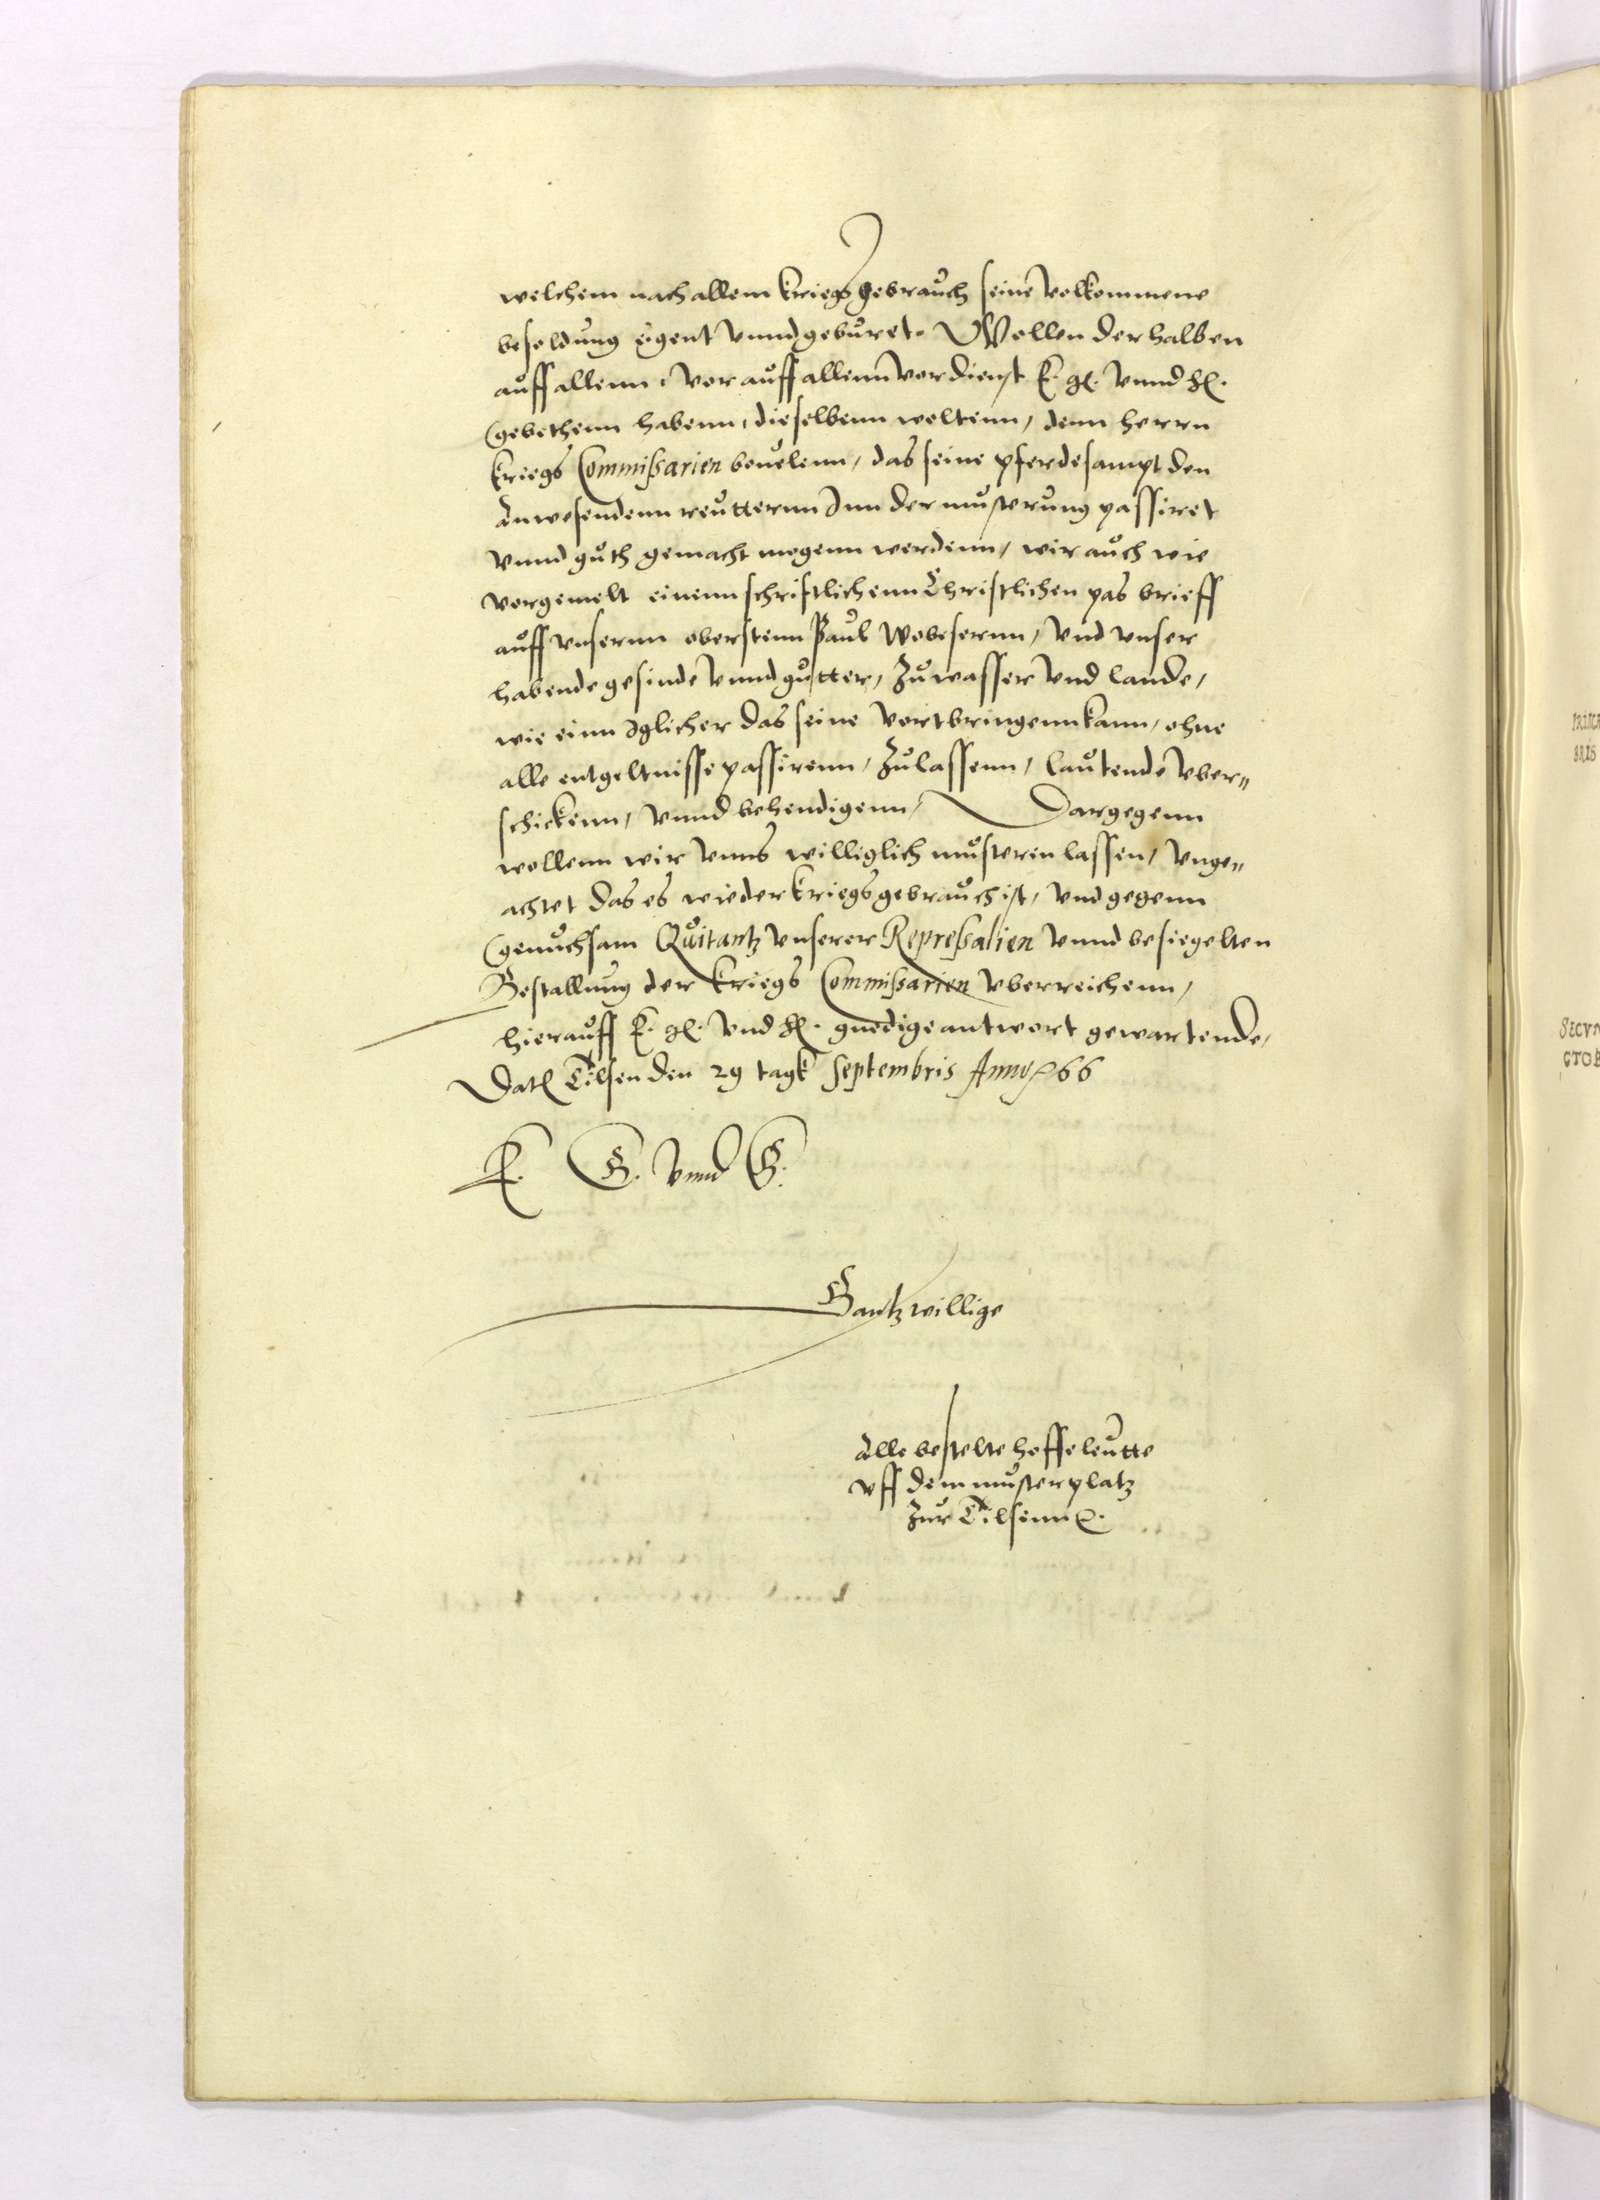 welchem nach allem kriegs gebrauch seine volkommene
besoldung eigent vnnd geburet. Wollen derhalben
auff allenn, vor auff allenn vordienst E. g. vnnd h.
gebethenn habenn, dieselbenn woltenn, denn herrn
kriegs Commißarien beuelenn, das seine pferde sampt den
Anwesendenn reutternn Jnn der musterung passiret
vnnd guth gemacht mogenn werdenn, wir auch wie
vorgemelt einenn schriftlichenn Christlichen pas brieff
auff vnsernn oberstenn Paul Wobesernn, vnd vnser
habende gesinde vnnd gutter, zu wasser vnd lande,
wie einn Jglicher das seine vortbringenn kann, ohne
alle entgeltnisse passirenn, zulassenn, lautende vber„
schickenn, vnnd behendigenn, Dargegenn
wollenn wir vnns williglich musteren lassen, vnge„
achtet das es wieder kriegs gebrauch ist, vnd gegenn
genuchsam Quitantz vnserer Repreßalien vnnd besiegelten
Bestallung der kriegs Commißarien vberreichenn,
hierauff E. g. vnd h. gnedige antwort gewartende,
Dat Tilsen den 29 tagk Septembris Anno 66
E. G. vnnd G.
Gantzwillige
Alle bestelte hoffeleutte
vff dem musterplatz
zur Tilsenn